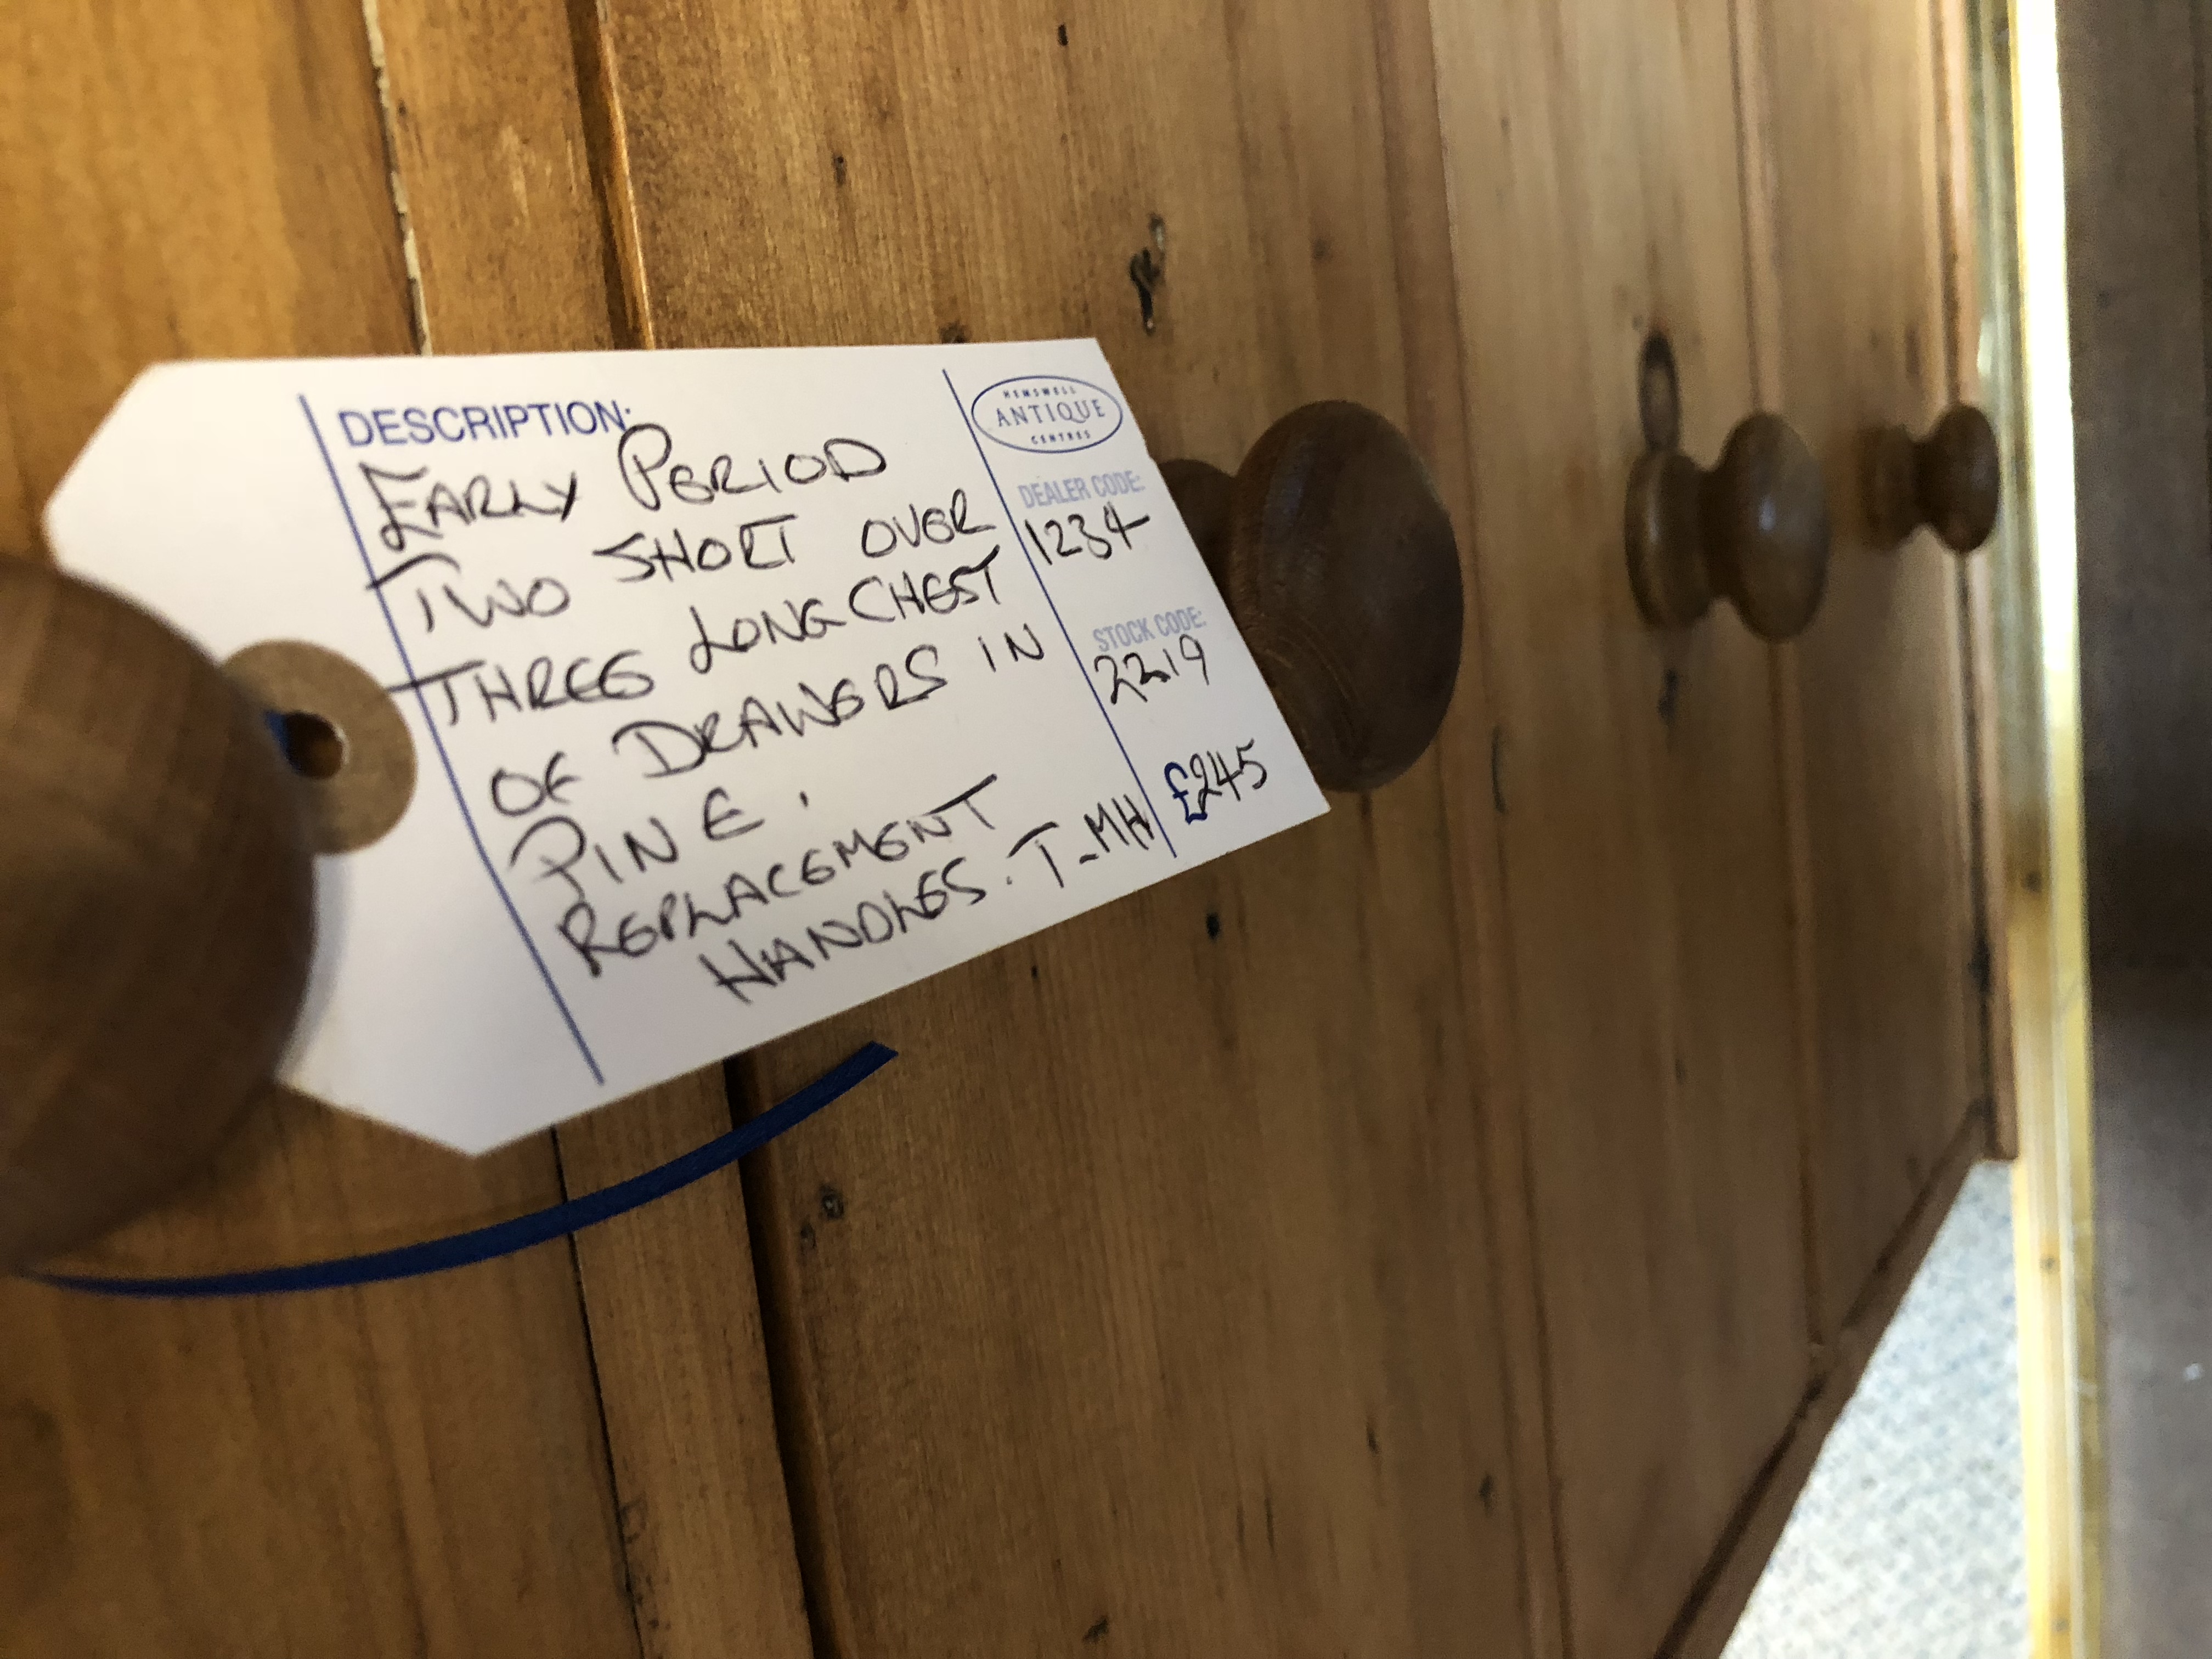 DESCRIPTION:
EARLY PERIOD
TWO SHORT OVER
THREE LONG CHEST
OF DRAWERS IN
PINE.
REPLACEMENT
HANDLES. T-MH
HEMSWELL
ANTIQUE
CENTRES
DEALER CODE:
1234
STOCK CODE:
2219
£245